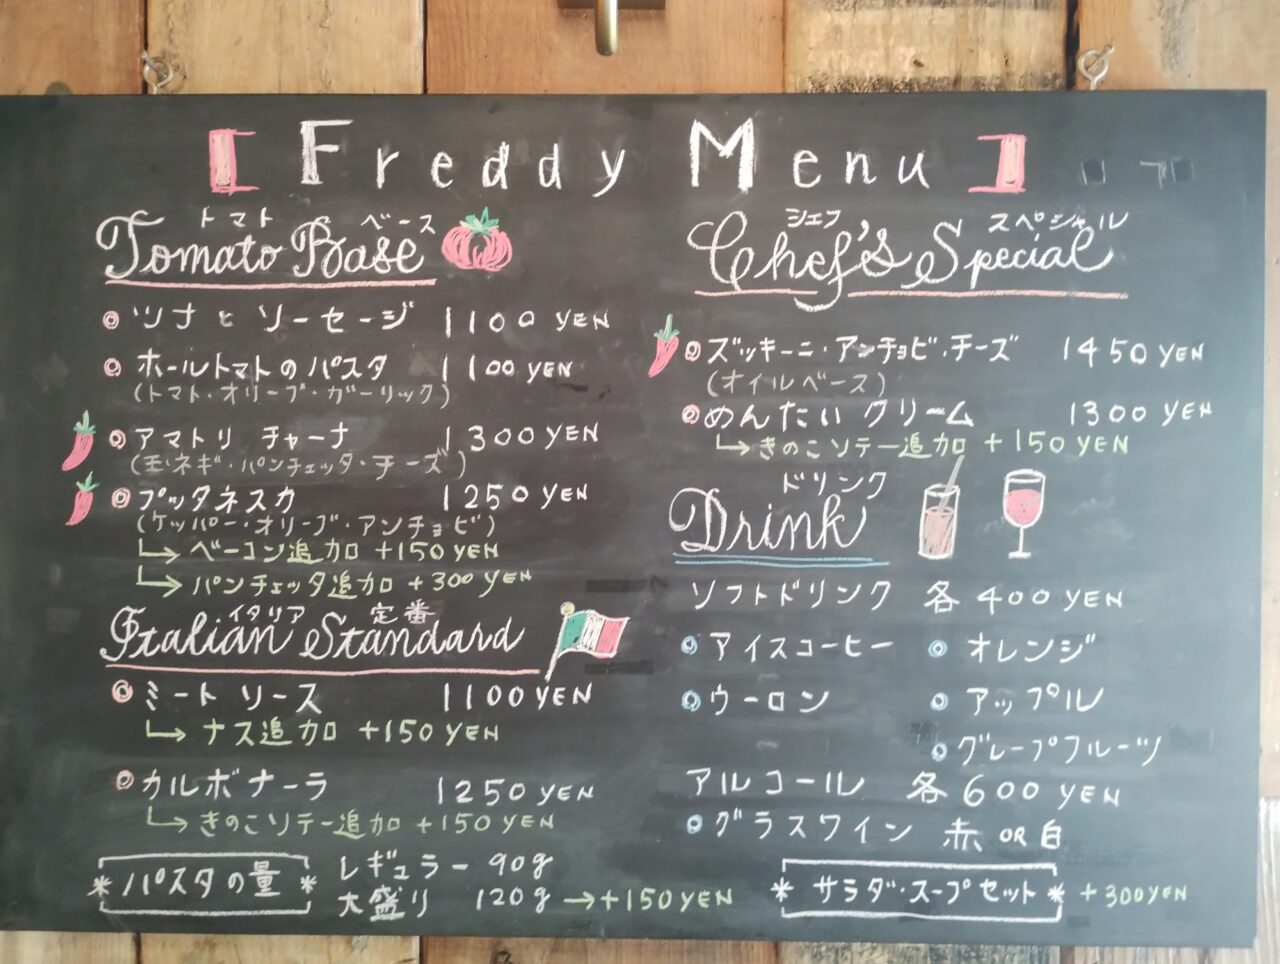 【 Freddy Menu 】
トマト ベース
Tomato Base
◎ ツナと ソーセージ 1100 YEN
◎ ホールトマトのパスタ 1100 YEN
(トマト・オリーブ・ガーリック)
◎ アマトリ チャーナ 1300 YEN
(玉ネギ・パンチェッタ・チーズ)
◎ プッタネスカ 1250 YEN
(ケッパー・オリーブ・アンチョビ)
↳ ベーコン追加 +150 YEN
↳ パンチェッタ追加 +300 YEN
イタリア 定番
Italian Standard
◎ ミート ソース 1100 YEN
↳ ナス追加 +150 YEN
◎ カルボナーラ 1250 YEN
↳ きのこソテー追加 +150 YEN
* パスタの量 * レギュラー 90g
大盛り 120g → +150 YEN
シェフ スペシャル
Chef's Special
◎ ズッキーニ・アンチョビ・チーズ 1450 YEN
(オイルベース)
◎ めんたい クリーム 1300 YEN
↳ きのこソテー追加 +150 YEN
ドリンク
Drink
ソフトドリンク 各 400 YEN
◎ アイスコーヒー ◎ オレンジ
◎ ウーロン ◎ アップル
◎ グレープフルーツ
アルコール 各 600 YEN
◎ グラスワイン 赤 OR 白
* サラダ・スープセット * +300 YEN